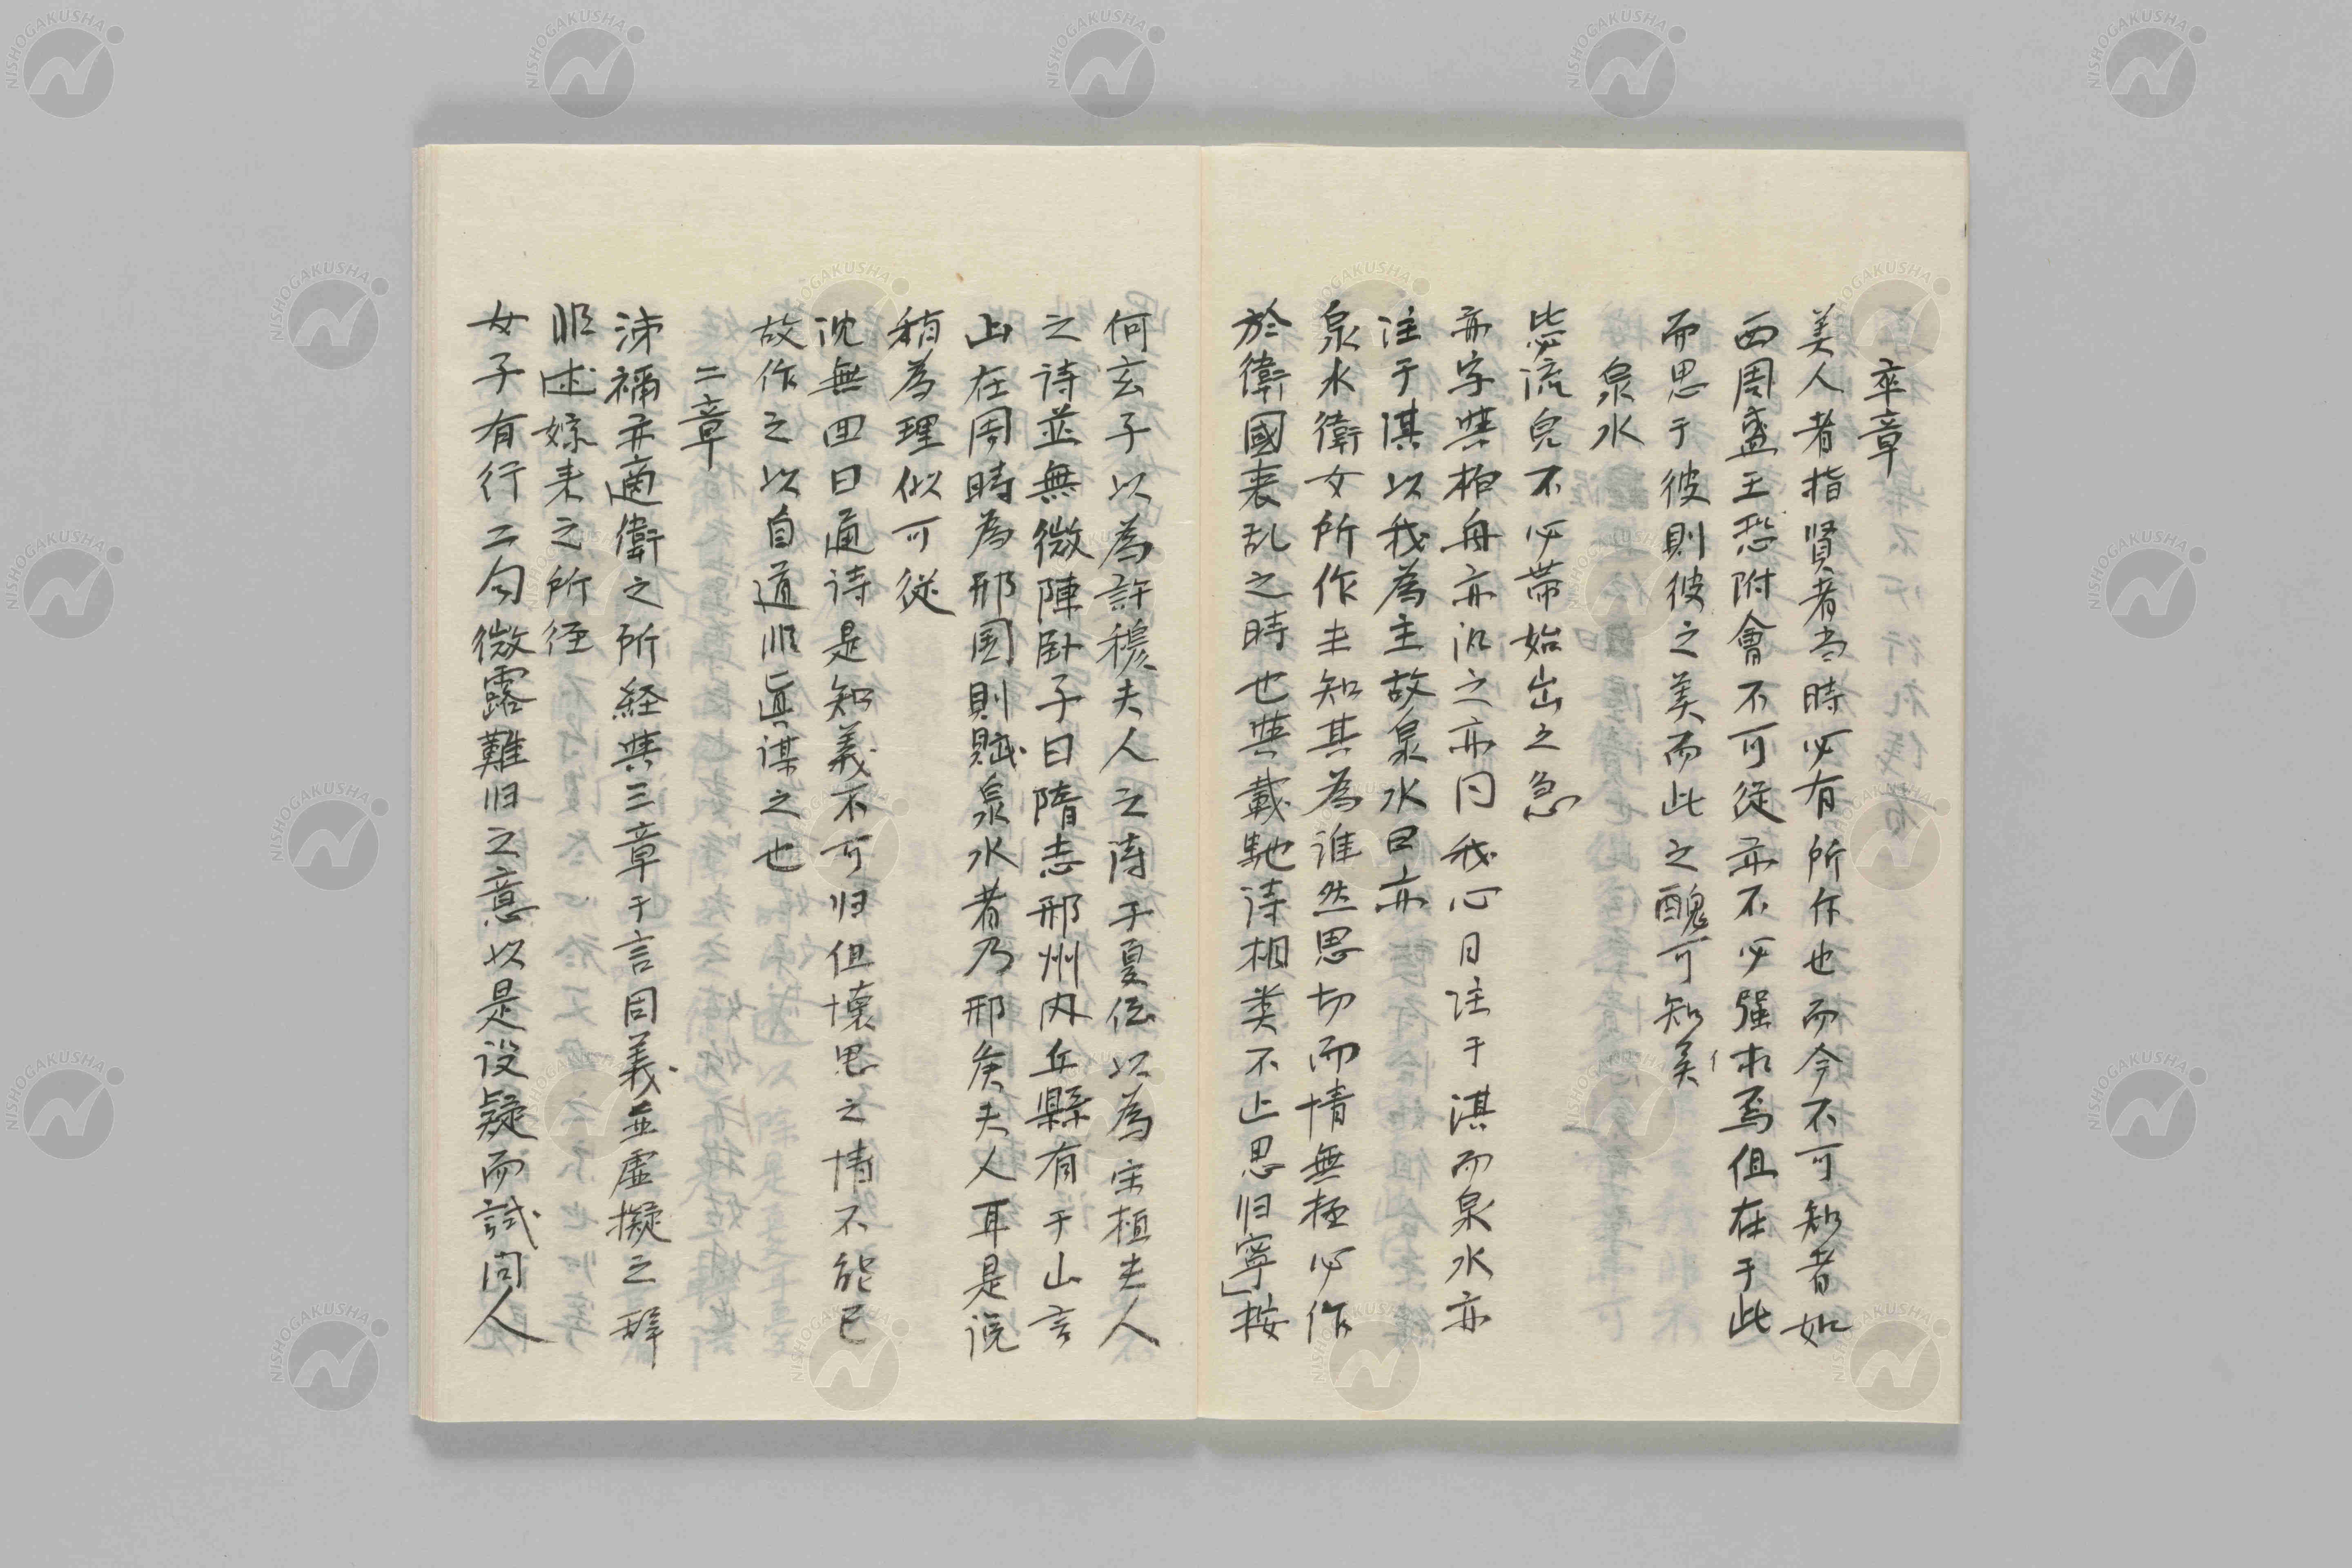 卒章
美人者指贤者当時必有所作也而今不可知者如
西周盛王恐附會不可従亦不必强求焉但在于此
而思于彼則彼之美而此之醜可知矣
泉水
毖流皃不必帶始出之急
亦字與柏舟亦汎之亦同我心日注于淇而泉水亦
注于淇以我為主故泉水曰亦
泉水衛女所作未知其為誰然思切而情無極必作
於衛國衰乱之時也與載馳詩相类不止思归寧」按
何玄子以為許穆夫人之詩子夏伝以為宋桓夫人
之诗並無徵陣卧子曰隋志邢州内丘縣有干山言
山在周時為邢国則賦泉水者乃邢侯夫人耳是说
稍為理似可從
沈無回曰通诗是知義不可归但懐思之情不能已
故作之以自道非真谋之也
二章
泲禰亦適衛之所経與三章干言同義並虚擬之辞
非述嫁来之所径
女子有行二句微露難归之意以是设疑而試问人
NISHOGAKUSHA